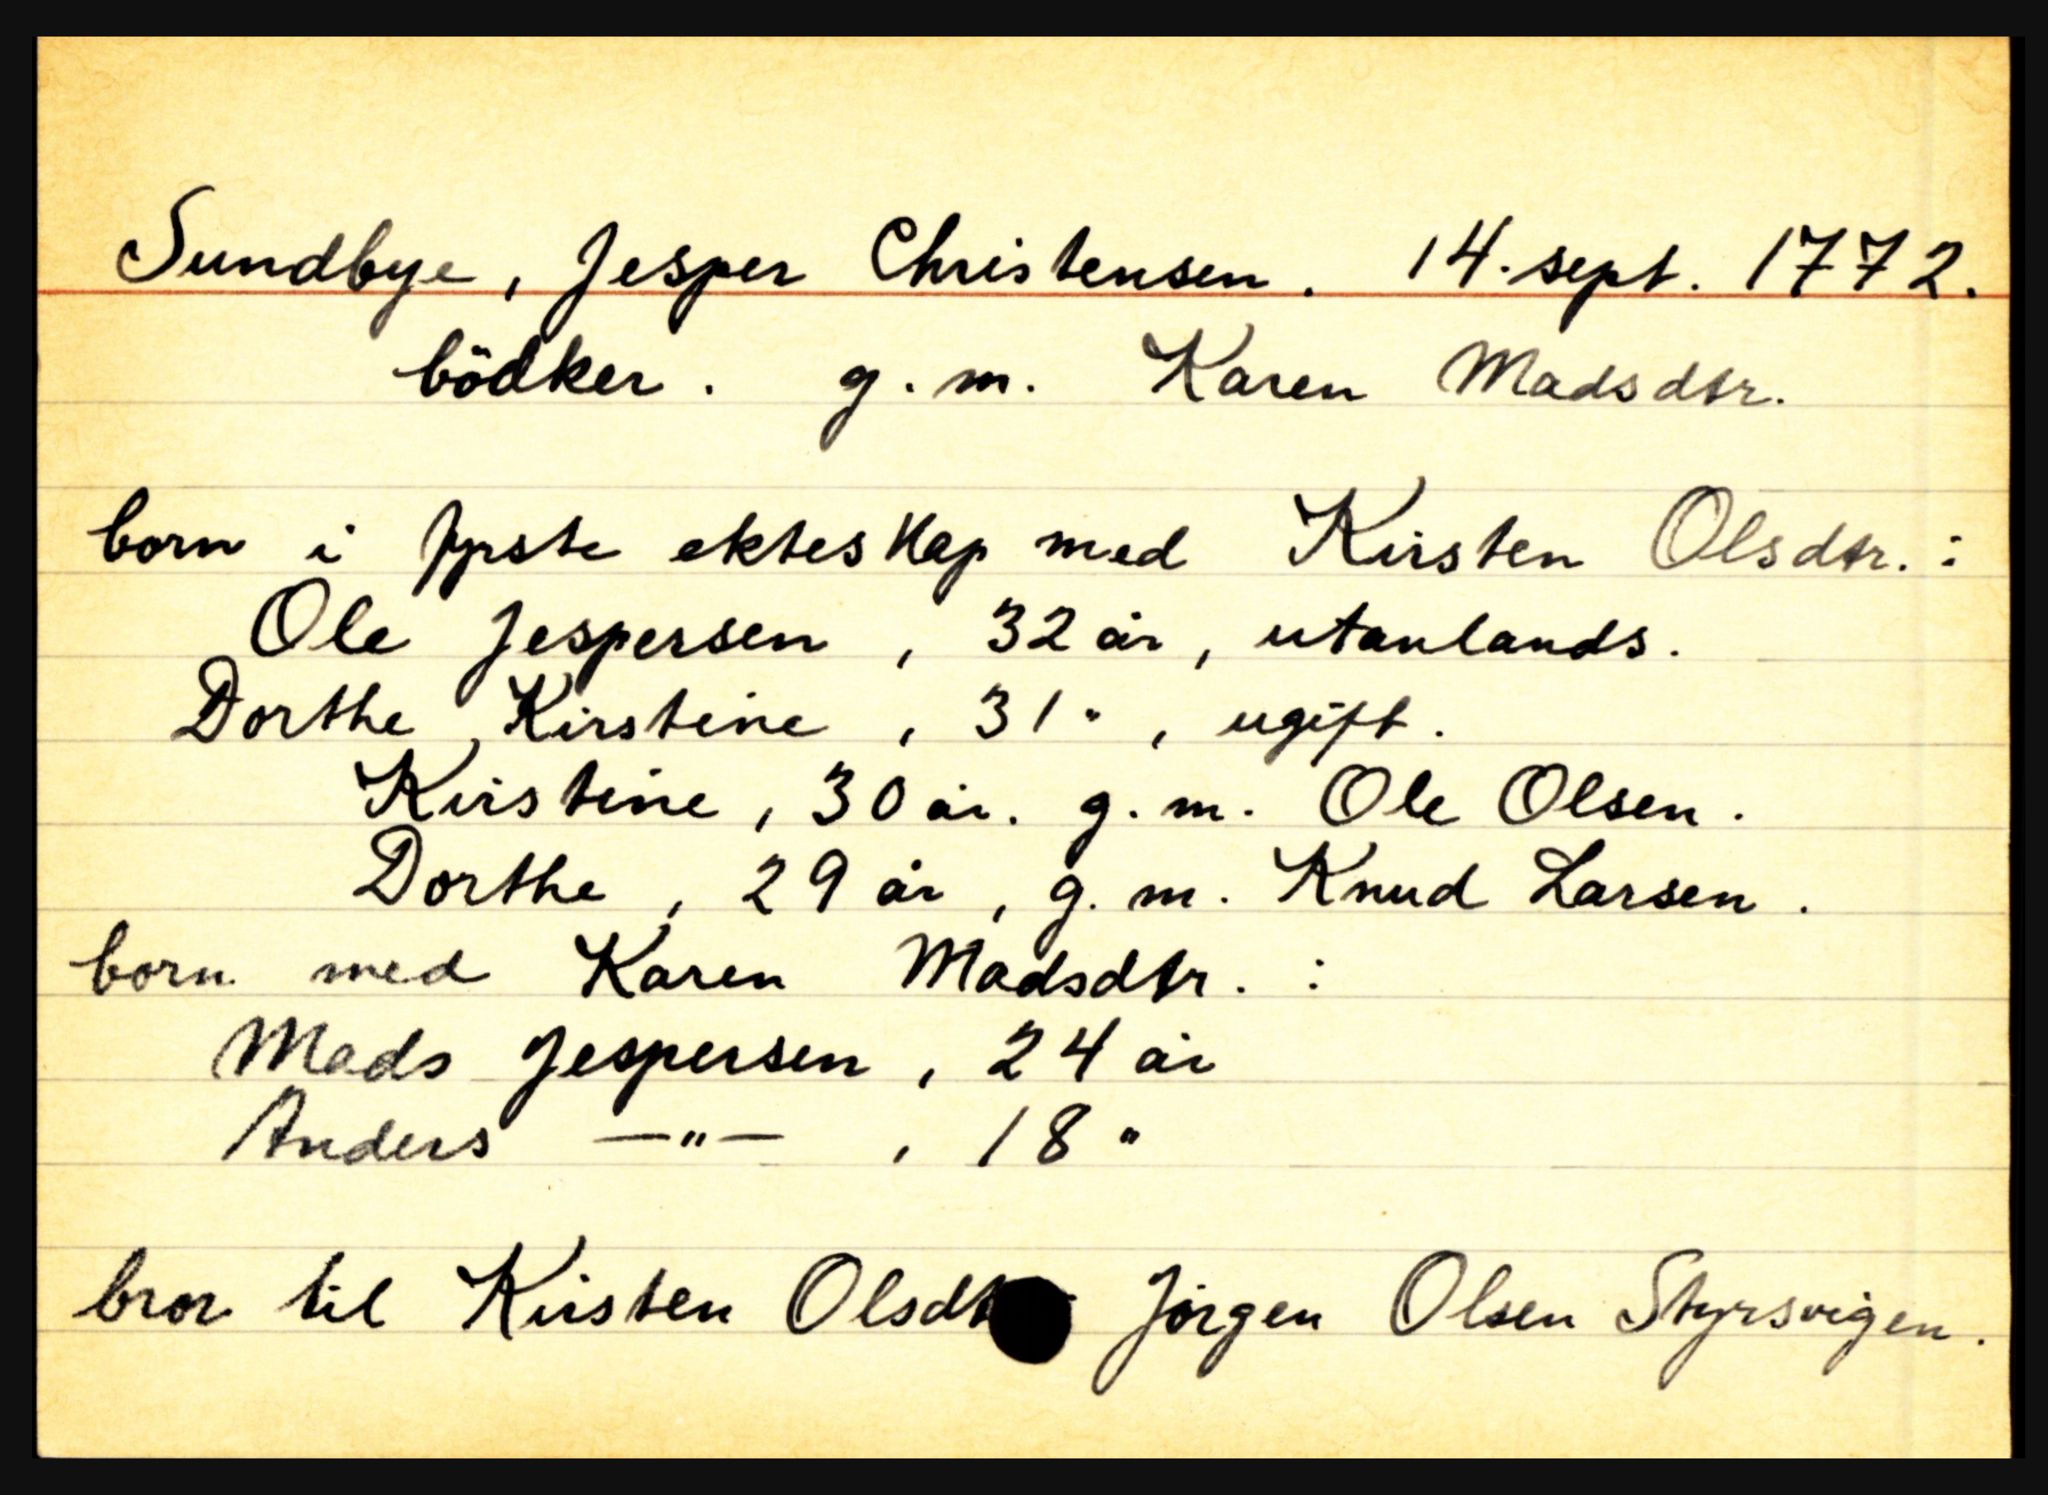 Sundbye, Jesper Christensen. 14. sept. 1772.
bödker. g. m. Karen Madsdtr.
born i fyrste ekteskap med Kirsten Olsdtr. :
Ole Jespersen, 32 år, utanlands.
Dorthe Kirstine, 31 ", ugift.
Kirstine, 30 år. g. m. Ole Olsen.
Dorthe, 29 år, g. m. Knud Larsen.
born med Karen Madsdtr. :
Mads Jespersen, 24 år
Anders —"— , 18 "
bror til Kirsten Olsdt Jörgen Olsen Styrsvigen.